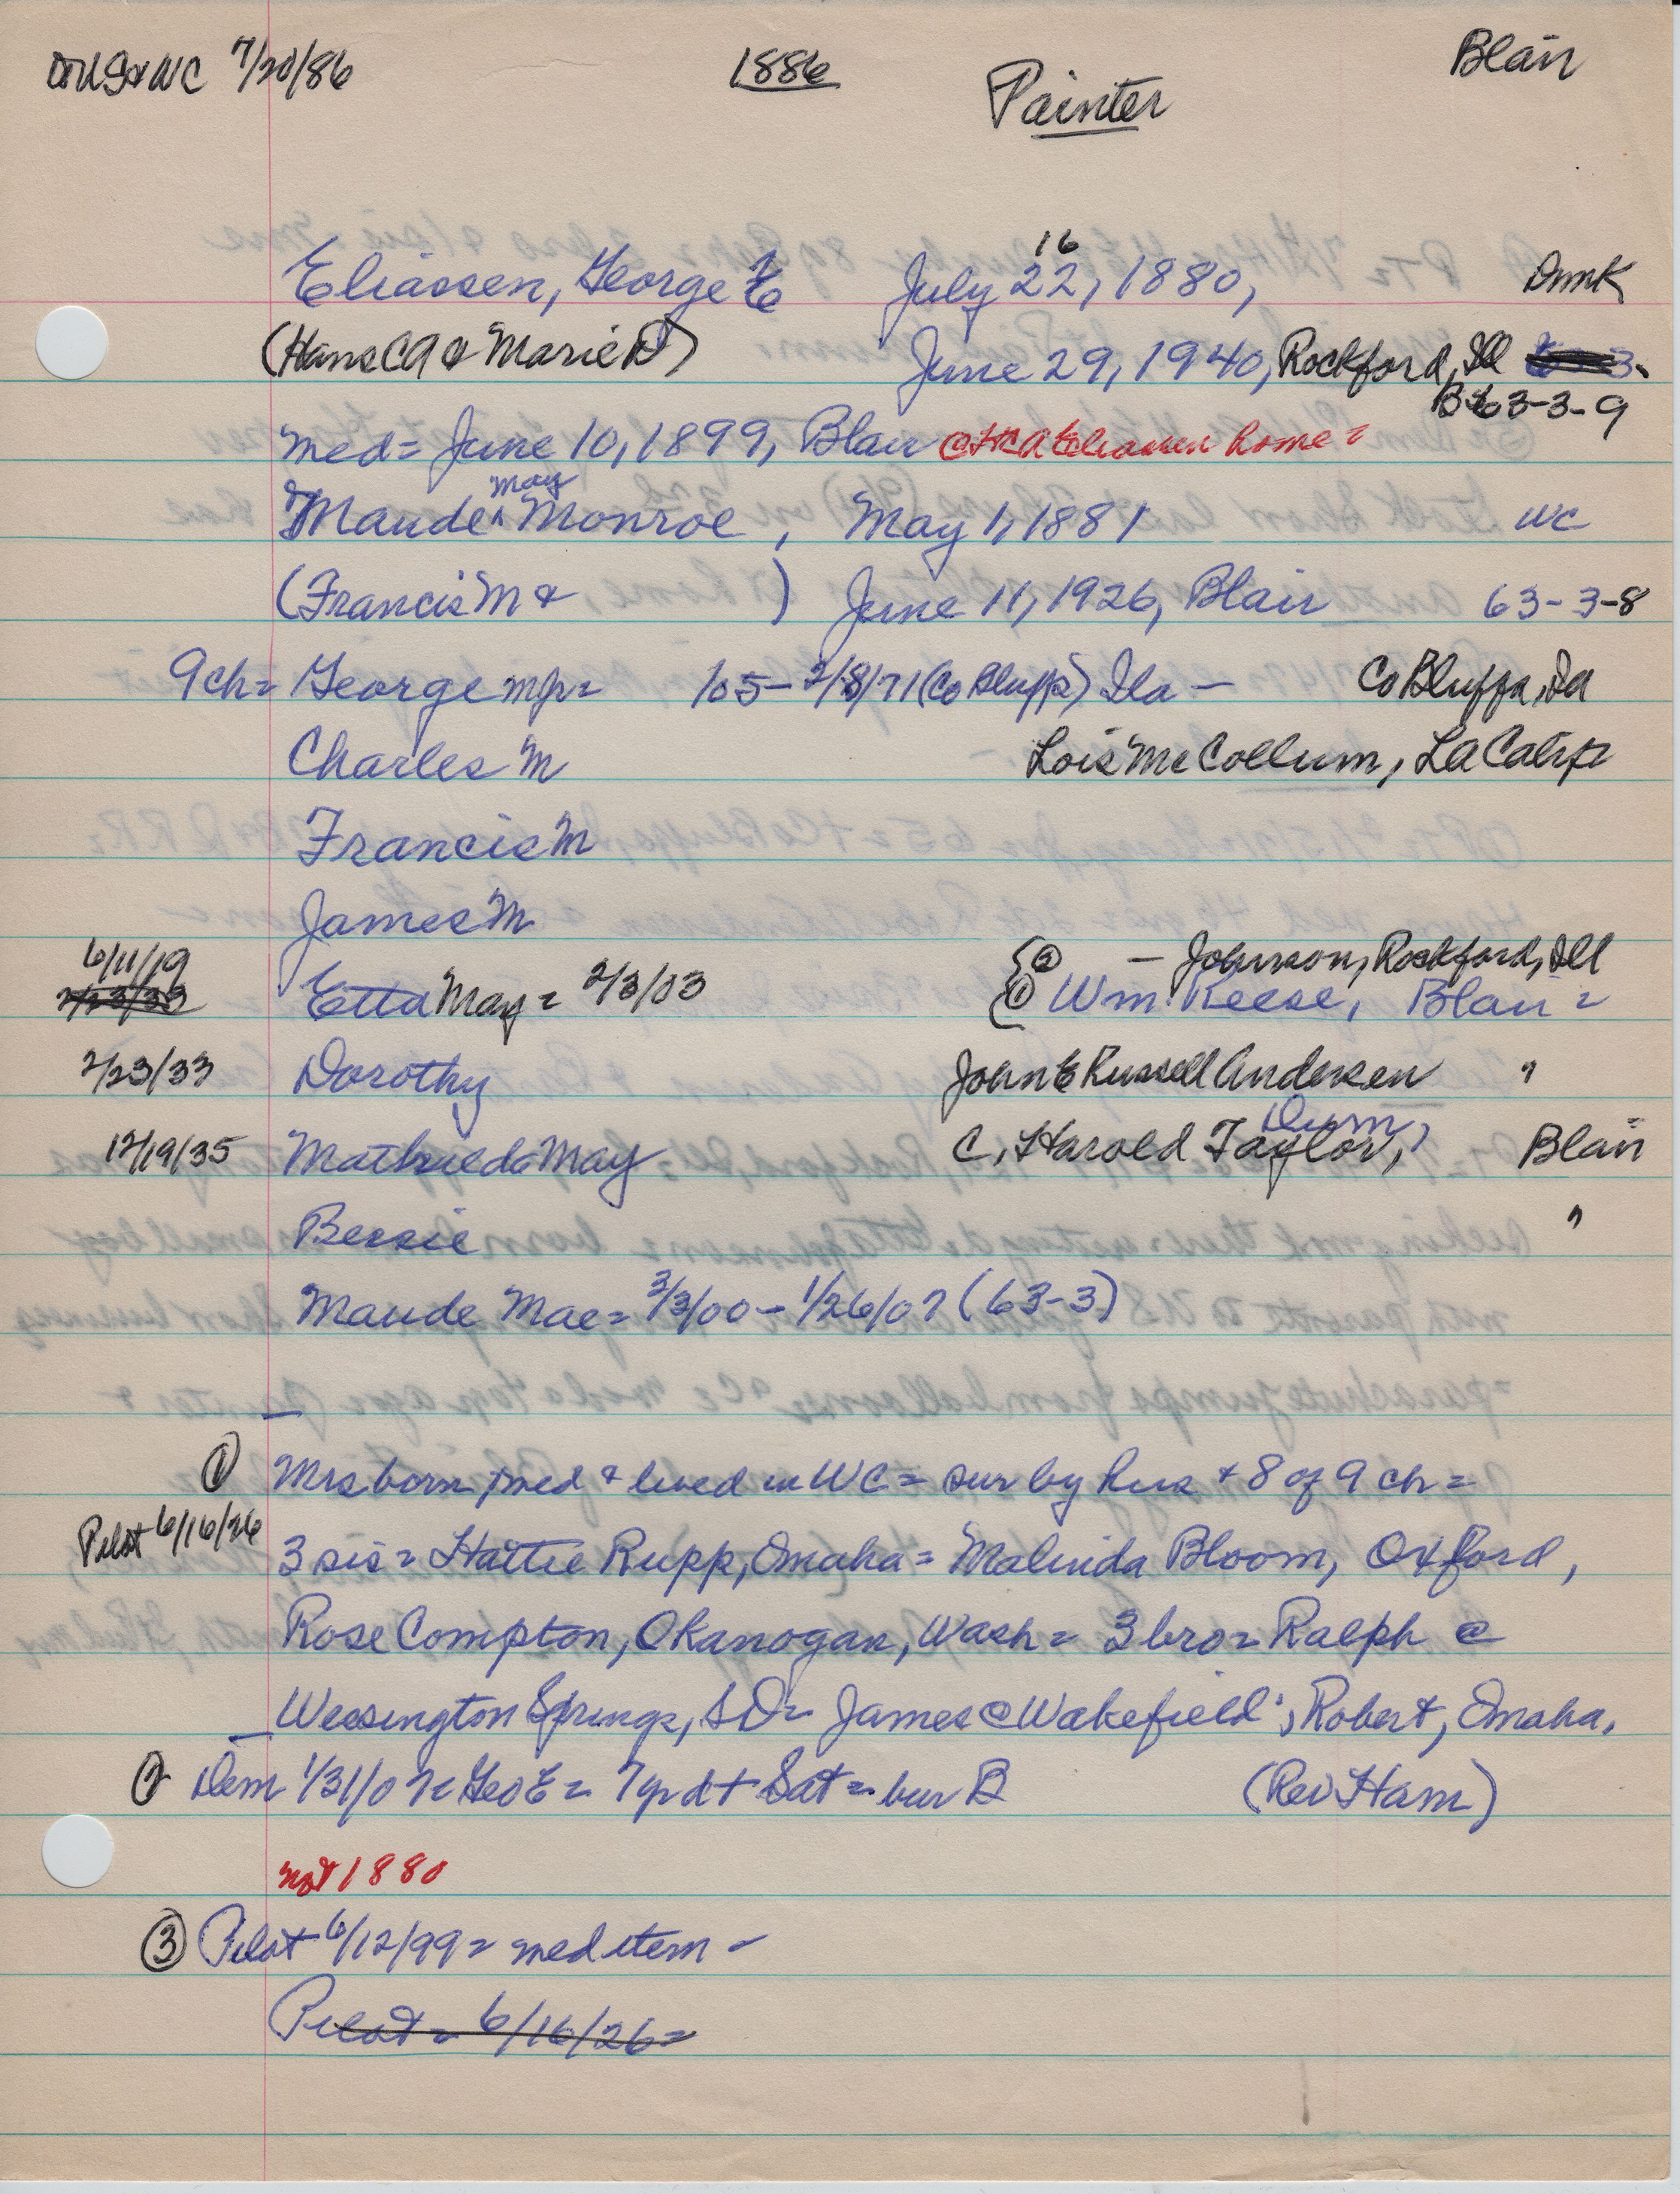 7/20/86 1886 Blair
Painter
16
Eliassen, George E July 22, 1880, Dmk
(Hans CA & Marie D) June 29, 1940, Rockford, Ill
B 63-3-9
med = June 10, 1899, Blair @ HCA Eliassen home =
May
Maude ^ Monroe , May 1, 1881 WC
(Francis M & ) June 11, 1926, Blair 63-3-8
9 ch = George = /05 - 2/8/71 (Co Bluffs) Ila - Co Bluffs, Ia
Charles M Lois McCollum, LA Calif
Francis M
James M
6/11/19 (2) — Johnson, Rockford, Ill
2/23/33 Etta May = 2/3/03 (1) Wm. Reese, Blair =
2/23/33 Dorothy John E Russell Andersen "
Dum,
12/19/35 May C. Harold Taylor, Blair
Bessie "
Maude Mae = 3/3/00 - 1/26/07 (63-3)
(1) Mrs born, med & lived in WC = sur by hus + 8 of 9 ch =
Pilot 6/16/26 3 sis = Hattie Rupp, Omaha = Malinda Bloom, Oxford,
Rose Compton, Okanogan, Wash = 3 bro = Ralph @
Wessington Springs, SD = James @ Wakefield; Robert, Omaha.
Dem 1/31/07 = Geo E = 7 yr d + Sat = bur B (Rev Ham)
not 1880
(3) Pilot 6/12/99 = med item =
Pilot = 6/16/26 =